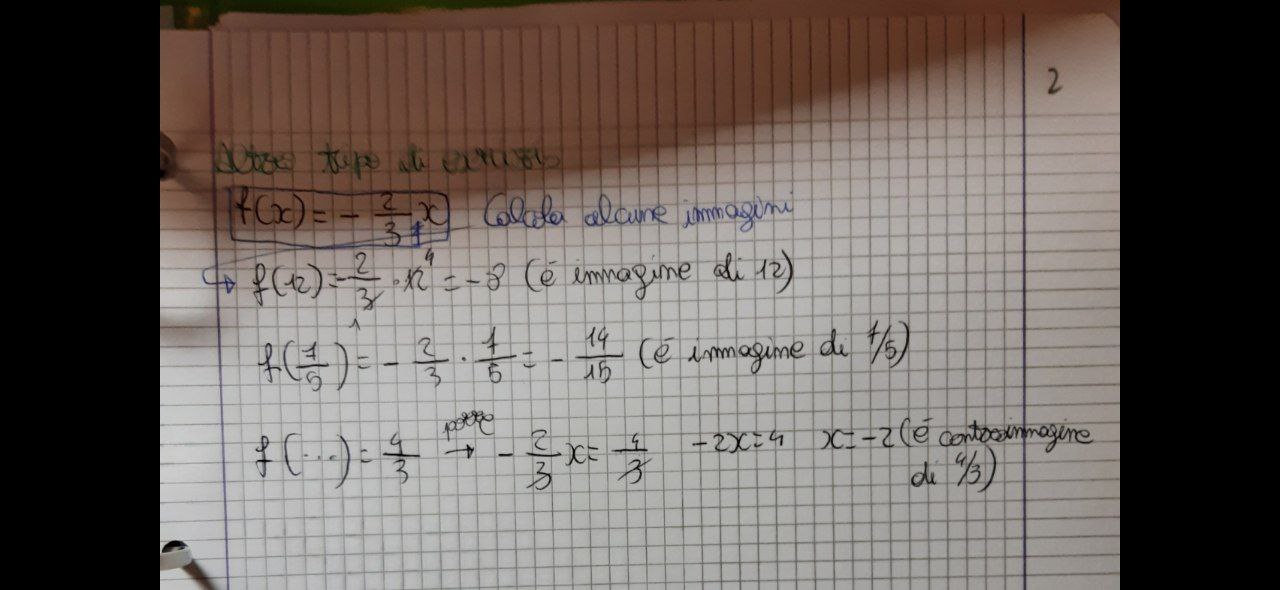 2
Altro tipo di esercizio
f(x) = - 2/3 x Calcola alcune immagini
f(12) = - 2/3 · 12 4 = - 8 (é immagine di 12)
1
f(7/5) = - 2/3 · 7/5 = - 14/15 (é immagine di 7/5)
f(...) = 4/3 pongo → - 2/3 x = 4/3 -2x=4 x=-2 (é controimmagine
di 4/3)